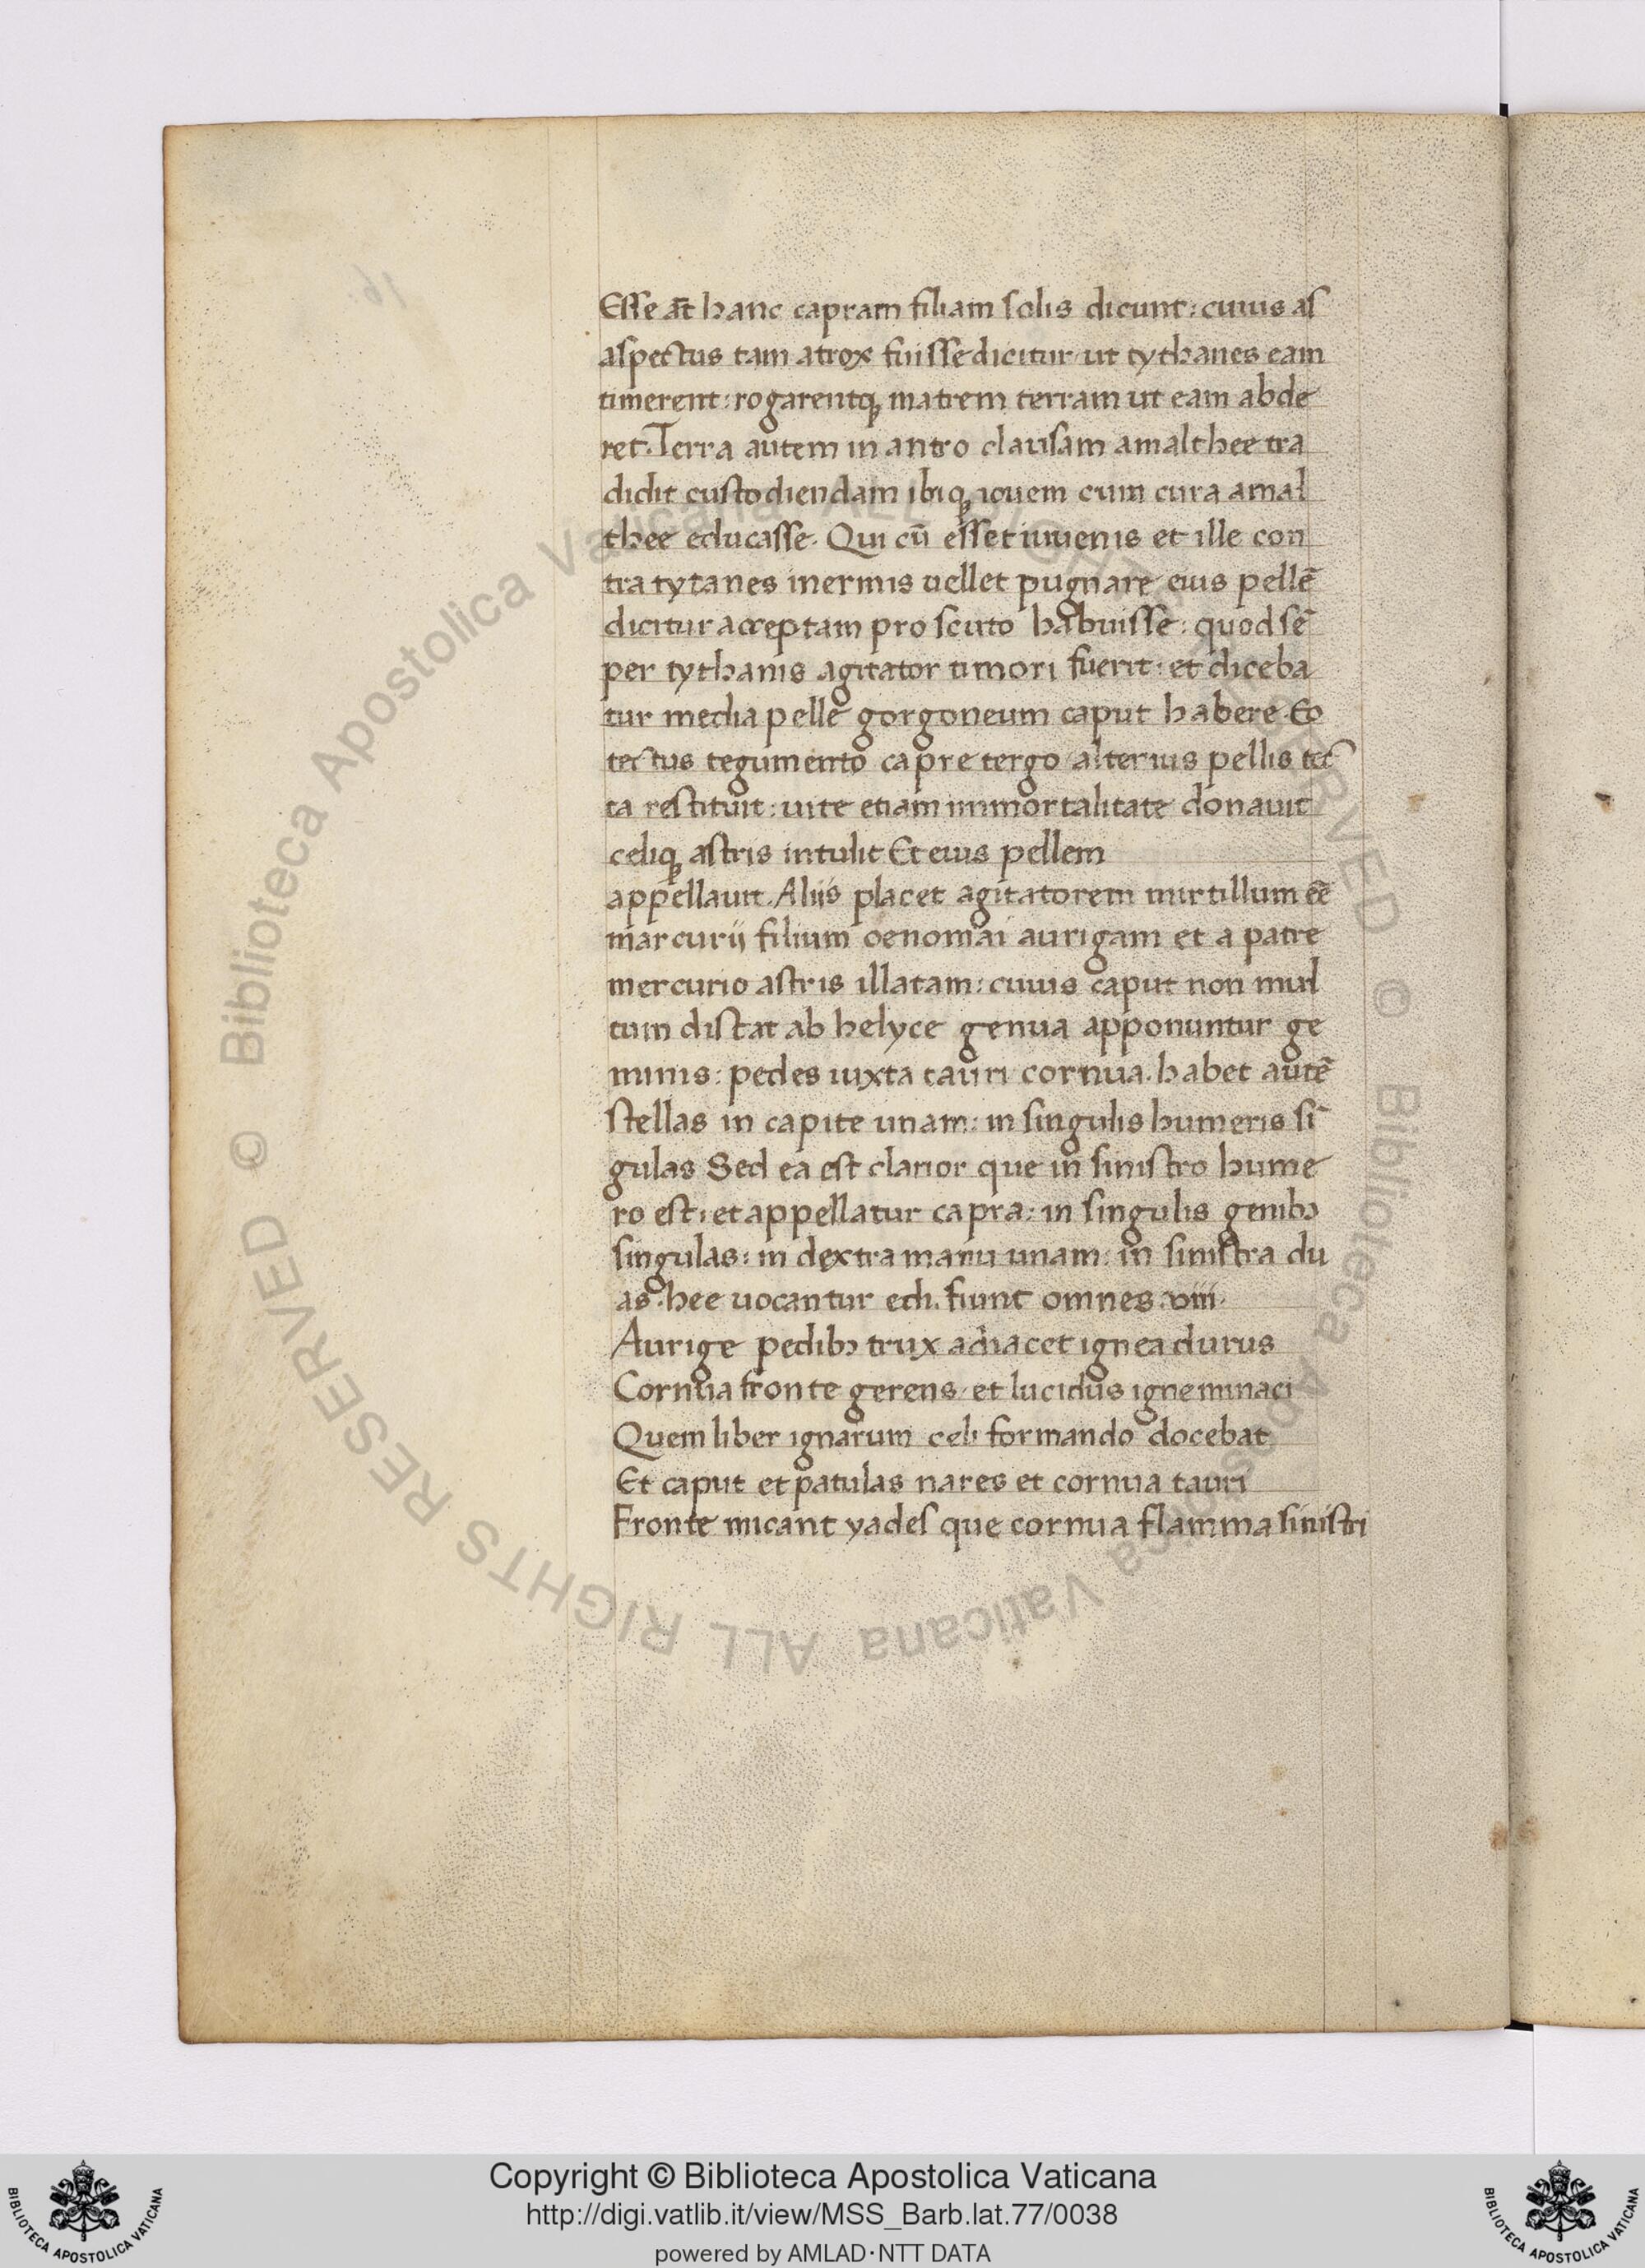 Esse āt hanc capram filiam solis dicunt: cuius as
aspectus tam atrox fuisse dicitur ut tythanes eam
timerent: rogarentq; matrem terram ut eam abde
ret. Terra autem in antro clausam amalthee tra
didit custodiendam ibiq; iouem cum cura amal
thee educasse. Qui cū esset iuuenis et ille con
tra tytanes inermis uellet pugnare eius pellē
dicitur acceptam pro scuto habuisse: quod sē
per tythanis agitator timori fuerit: et diceba
tur media pelle gorgoneum caput habere. Eo
tectus tegumento capre tergo alterius pellis tec
ta restituit: uite etiam immortalitate donauit
celiq; astris intulit Et eius pellem
appellauit. Aliis placet agitatorem mirtillum eē
marcurij filium oenomai aurigam et a patre
mercurio astris illatam: cuius caput non mul
tum distat ab helyce genua apponuntur ge
minis: pedes iuxta tauri cornua. habet autē
stellas in capite unam: in singulis humeris sī
gulas Sed ea est clarior que in sinistro hume
ro est: et appellatur capra: in singulis genibꝫ
singulas: in dextra manu unam: in sinistra du
as. hee uocantur edi. fiunt omnes .viii.
Aurige pedibꝫ trux adiacet ignea durus
Cornua fronte gerens et lucidus igne minaci
Quem liber ignarum celi formando docebat
Et caput et patulas nares et cornua tauri
Fronte micant yades que cornua flamma sinistri
Biblioteca Apostolica Vaticana ALL RIGHTS RESERVED ©
Biblioteca Apostolica Vaticana ALL RIGHTS RESERVED ©
BIBLIOTECA APOSTOLICA VATICANA
Copyright © Biblioteca Apostolica Vaticana
http://digi.vatlib.it/view/MSS_Barb.lat.77/0038
powered by AMLAD·NTT DATA
BIBLIOTECA APOSTOLICA VATICANA